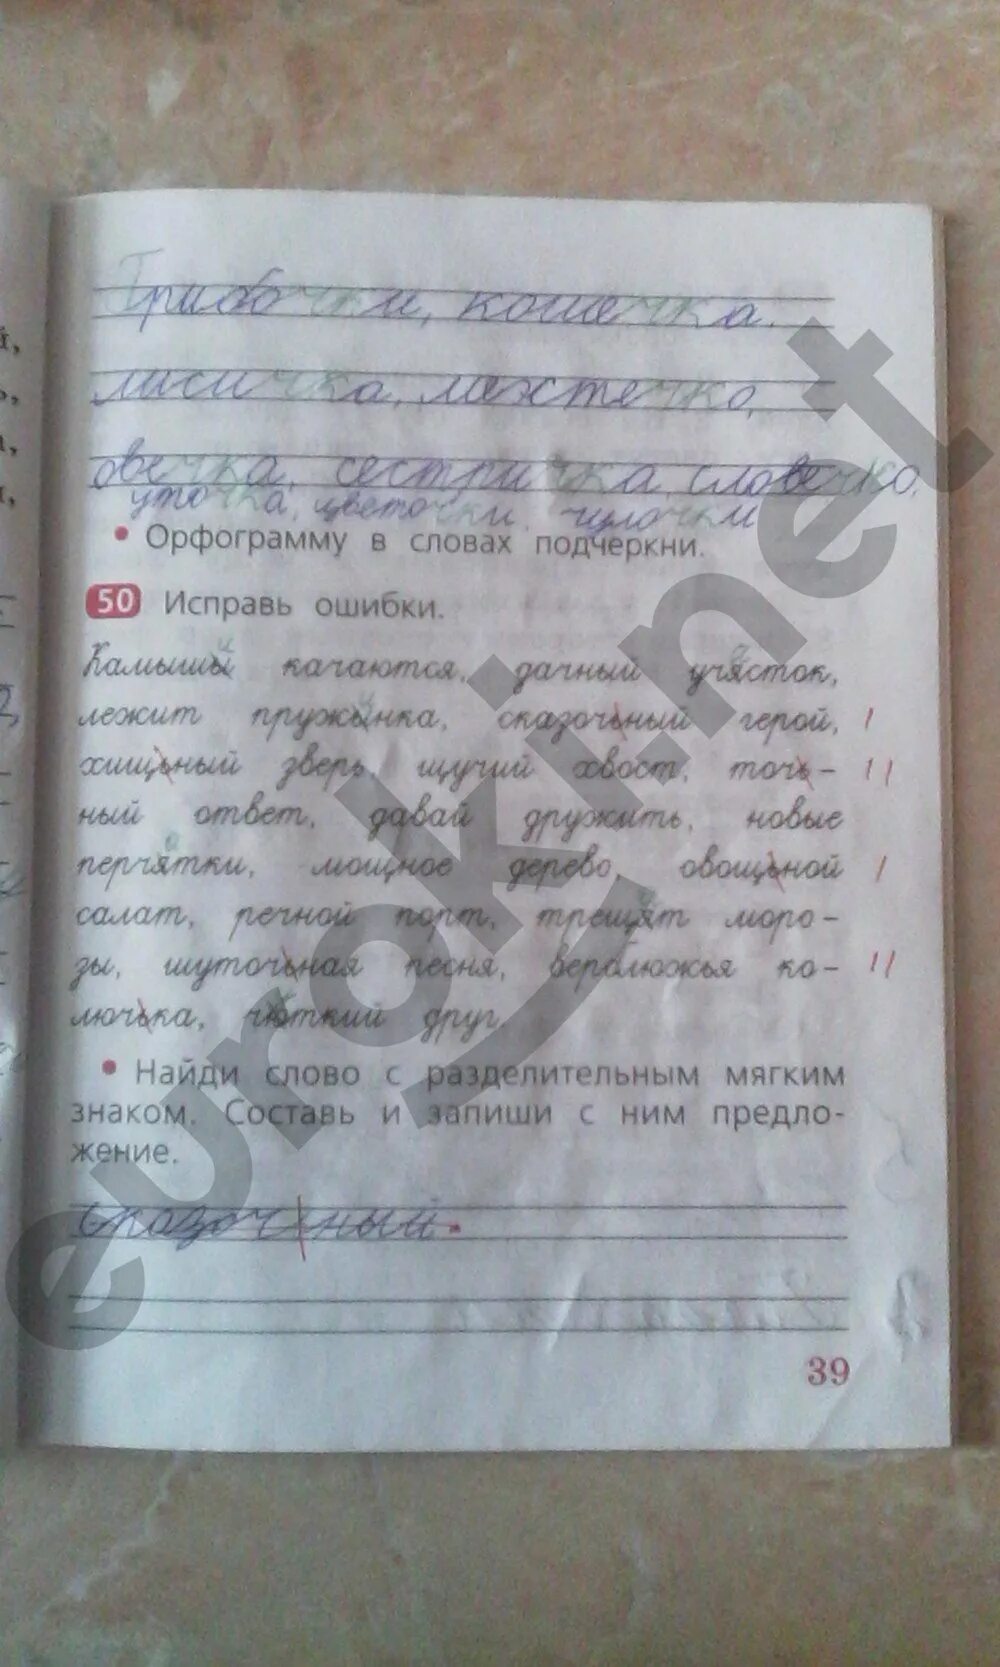 Грибочки, кошечка.
лисичка, местечко,
овечка, сестричка, словечко,
уточка, цветочки, чулочки
• Орфограмму в словах подчеркни.
50 Исправь ошибки.
Камышы качаются, дачный учясток,
лежит пружынка, сказочьный герой,
хищьный зверь, щучий хвост, точь-
ный ответ, давай дружить, новые
перчятки, мощное дерево, овощьной
салат, речной порт, трещят моро-
зы, шуточьная песня, верблюжья ко-
лючька, чюткий друг.
• Найди слово с разделительным мягким
знаком. Составь и запиши с ним предло-
жение.
сказочный.
39
euroki.net